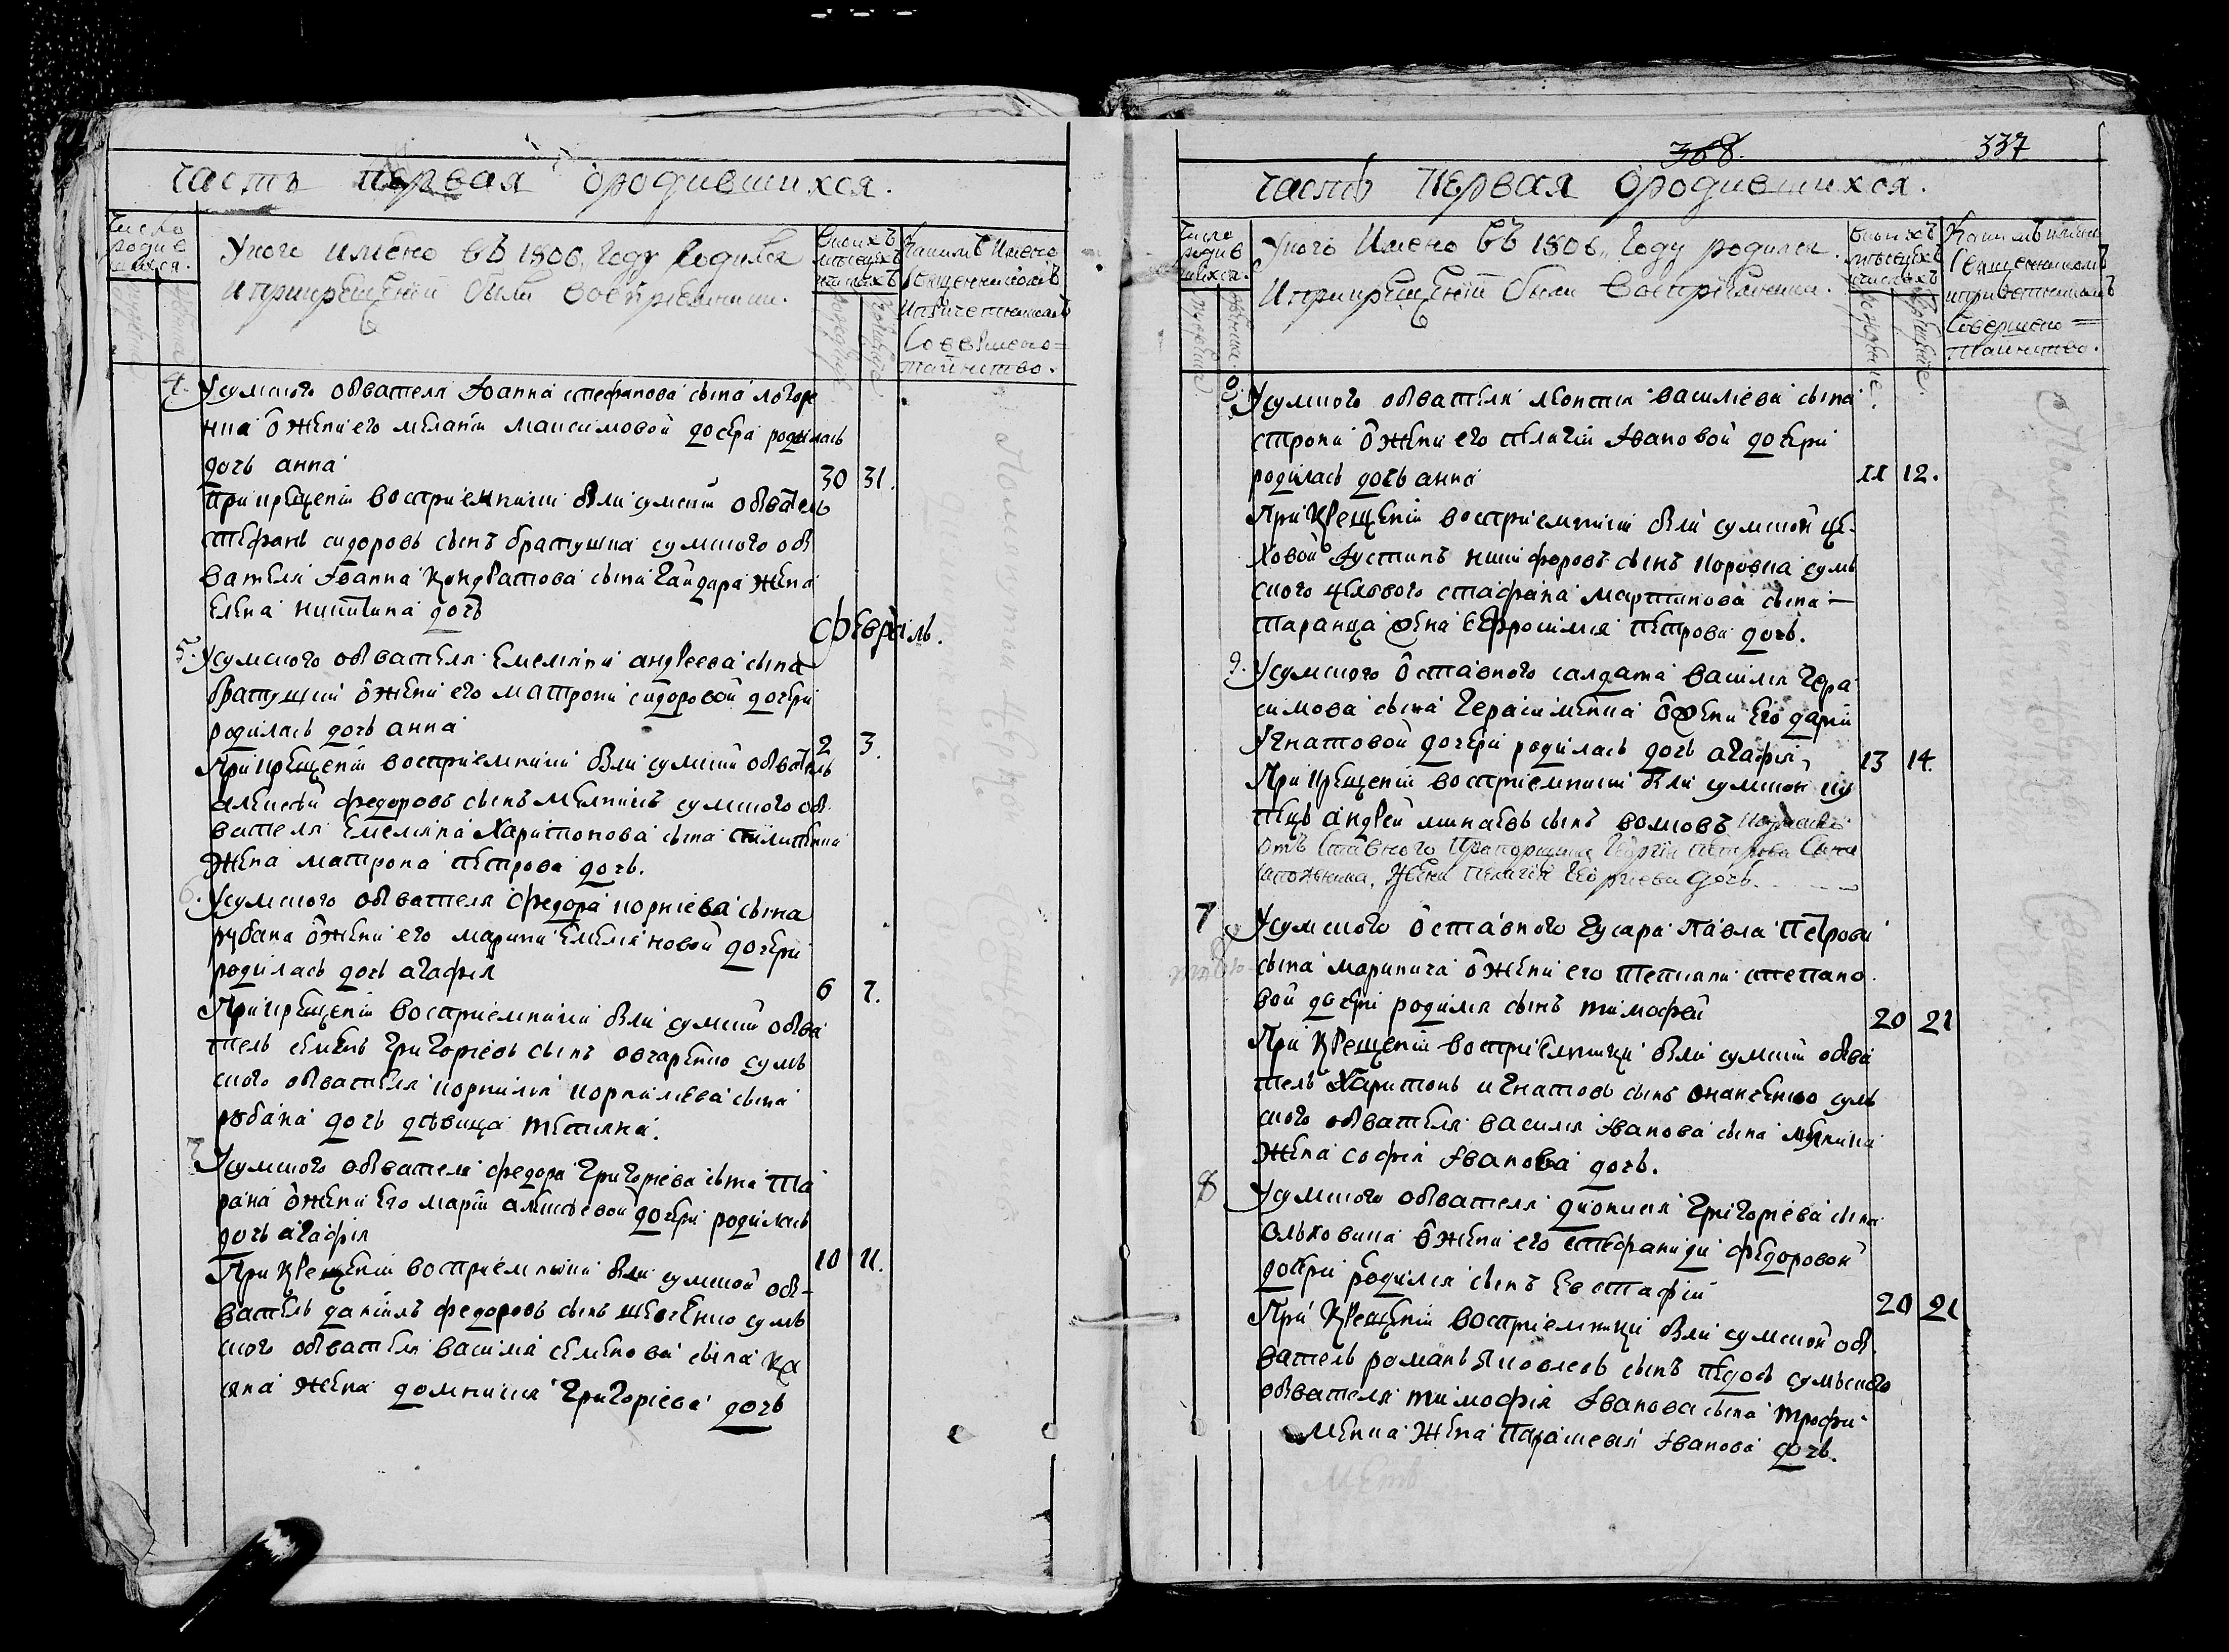 часть первая ородившихся.
Число родив шихся.
Укого имено въ 1806, году родился
иприкрещении были воспрiемники.
вкоихъ месяцехъ ичислахъ
Какимъ имено Священникомъ ипричетникомъ Совершено= таинство.
4. Усумского обвателя Iоанна стефанова сына логоре
нка ожени его меланiи максимовой дочери родилась
дочь анна
30 31.
При крещенiи восприемники были сумскiи обватель
стефанъ сидоровъ сынъ братушка сумского обы
вателя Iванна кондратова сына гайдара жена
елена никитина дочь
февраль.
5. Усумского обвателя Емелiяна андреева сына
братушки ожени его матрони сидоровой дочери
родилась дочь анна
2 3.
При крещенiи восприемники были сумскiи обватель
алексей федоровъ сынъ мелникъ сумского об
вателя Емелiяна Харитонова сына
жена матрона петрова дочь.
6. Усумского обвателя федора корнiева сына
рубана ожени его марини емелiяновой дочери
родилась дочь агафiя
6 7.
При крещенiи восприемники были сумскiи обва
тель семенъ григорiевъ сынъ овчаренко сумъ
ского обвателя корнилiя корнилiева сына
рубана дочь девица тетiяна.
7 Усумского обвателя федора григорiева сына та
рана ожени его марiи алексеевой дочери родилась
дочь агафiя
10 11.
При крещенiи восприемники были сумской об-
ватель данiилъ федоровъ сынъ шевченко сумъ
ского обвателя василiя семенова сына ка
сяна жена домникия григорiева дочь
368. 337
часть первая ородившихся.
Число родив шихся.
Укого Имено въ 1806,, году родился.
Ипри крещенiи были воспрiемники.
вкоихъ месяцехъ ичислахъ
рожденiе. крещенiе.
Какимъ имено Священникомъ ипричетникомъ Совершено= таинство.
8. Усумского обвателя леонтiя василiева сына
строки ожени его пелагiи Iвановой дочери
родилась дочь анна
11 12.
При крещенiи восприемники были сумской це-
ховой Iустинъ никифоровъ сынъ коровка сумъ
ского цехового стефана мартинова сына
таранца жена Ефросинiя петрова дочь.
9. Усумского оставного салдата василiя гера
симова сына герасименка ожени его дарiи
Игнатовой дочери родилась дочь агафiя,
13 14.
При крещенiи восприемники были сумскои ку
пецъ андрей минаевъ сынъ волковъ
отъ ставного Прапорщика Георгiя петрова Сына
сапожника, Жена пелагiя Георгiева дочь.
7 Усумского оставного гусара павла петрова
сына маринича ожени его тетiяни степано
вой дочери родился сынъ тимофей
20 21
При крещенiи восприемники были сумскiи обва
тель Харитонъ игнатовъ сынъ онансенко сумъ
ского обвателя василiя Iванова сына мелника
жена софiя Iванова дочь.
8 Усумского обвателя дионисiя григорiева сына
олховика ожени его стефаниди федоровой
дочери родился сынъ евстафiй
20 21
При крещенiи восприемники были сумской об
ватель романъ яковлевъ сынъ педосъ сумъского
обвателя тимофiя Iванова сына трофи-
менка жена параскевiя Iванова дочь.